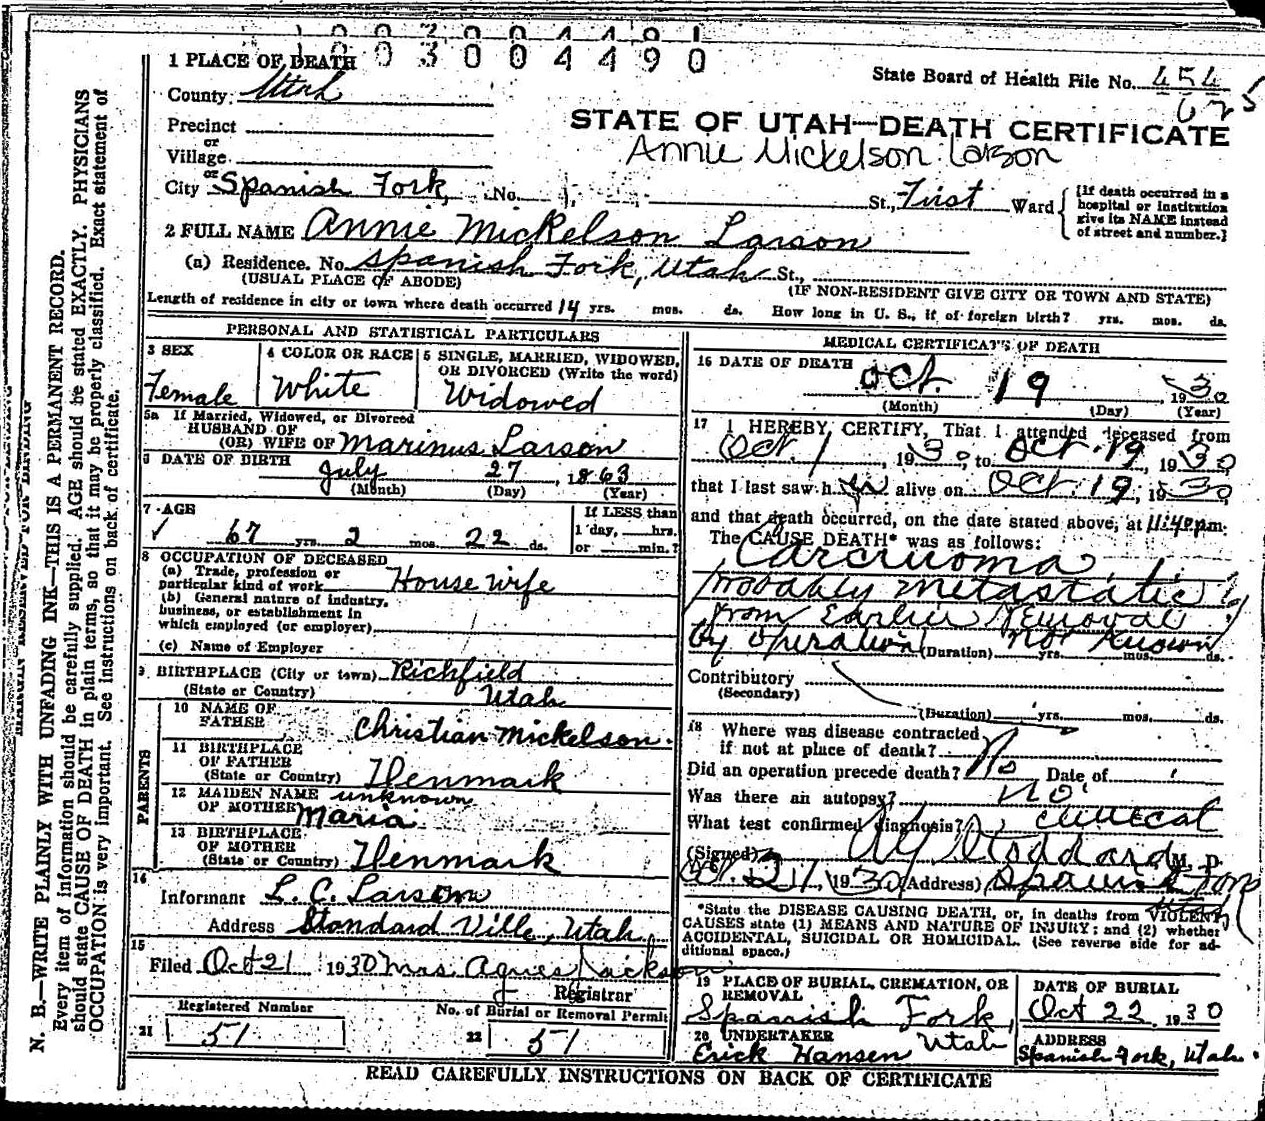 1003004490
1 PLACE OF DEATH
County: Utah
State Board of Health File No. 454
625
STATE OF UTAH—DEATH CERTIFICATE
Annie Mickelson Larson
Precinct
or
Village
or
City Spanish Fork, No. St., First Ward
[If death occurred in a
hospital or institution
give its NAME instead
of street and number.]
2 FULL NAME Annie Mickelson Larson
(a) Residence. No. Spanish Fork, Utah St.,
(USUAL PLACE OF ABODE) (IF NON-RESIDENT GIVE CITY OR TOWN AND STATE)
Length of residence in city or town where death occurred 14 yrs. mos. ds. How long in U. S., if of foreign birth? yrs. mos. ds.
PERSONAL AND STATISTICAL PARTICULARS
3 SEX
Female
4 COLOR OR RACE
White
5 SINGLE, MARRIED, WIDOWED,
OR DIVORCED (Write the word)
Widowed
5a If Married, Widowed, or Divorced
HUSBAND OF
(OR) WIFE OF Marinus Larson
6 DATE OF BIRTH July 27, 1863
(Month) (Day) (Year)
7 AGE
67 yrs. 2 mos. 22 ds.
If LESS than
1 day, hrs.
or min.?
8 OCCUPATION OF DECEASED
(a) Trade, profession or
particular kind of work House wife
(b) General nature of industry,
business, or establishment in
which employed (or employer)
(c) Name of Employer
9 BIRTHPLACE (City or town) Richfield
(State or Country) Utah
PARENTS
10 NAME OF
FATHER Christian Mickelson.
11 BIRTHPLACE
OF FATHER
(State or Country) Denmark
12 MAIDEN NAME unknown
OF MOTHER Maria
13 BIRTHPLACE
OF MOTHER
(State or Country) Denmark
14
Informant L. C. Larson
Address Standard Ville, Utah
15
Filed Oct 21 1930 Mrs. Agnes Jackson
Registrar
Registered Number
21 51
No. of Burial or Removal Permit
22 51
MEDICAL CERTIFICATE OF DEATH
16 DATE OF DEATH
Oct 19 1930
(Month) (Day) (Year)
17 I HEREBY CERTIFY, That I attended deceased from
Oct. 1, 1930, to Oct. 19, 1930
that I last saw her alive on Oct. 19, 1930
and that death occurred, on the date stated above, at 11:40 pm.
The CAUSE DEATH* was as follows:
Carcinoma
probably metastatic
from Earlier Removal
by Operation (Duration) Not Known yrs. mos. ds.
Contributory
(Secondary)
(Duration) yrs. mos. ds.
18 Where was disease contracted
if not at place of death?
Did an operation precede death? No Date of
Was there an autopsy? no.
What test confirmed diagnosis? clinical
(Signed) Stoddard M. D.
Oct. 21, 1930 (Address) Spanish Fork
Utah
*State the DISEASE CAUSING DEATH, or, in deaths from VIOLENT
CAUSES state (1) MEANS AND NATURE OF INJURY; and (2) whether
ACCIDENTAL, SUICIDAL OR HOMICIDAL. (See reverse side for ad-
ditional space.)
19 PLACE OF BURIAL, CREMATION, OR
REMOVAL
Spanish Fork, Utah
DATE OF BURIAL
Oct 22, 1930
20 UNDERTAKER
Erick Hansen
ADDRESS
Spanish Fork, Utah.
READ CAREFULLY INSTRUCTIONS ON BACK OF CERTIFICATE
N. B.—WRITE PLAINLY WITH UNFADING INK—THIS IS A PERMANENT RECORD.
Every item of information should be carefully supplied. AGE should be stated EXACTLY. PHYSICIANS
should state CAUSE OF DEATH in plain terms, so that it may be properly classified. Exact statement of
OCCUPATION is very important. See instructions on back of certificate.